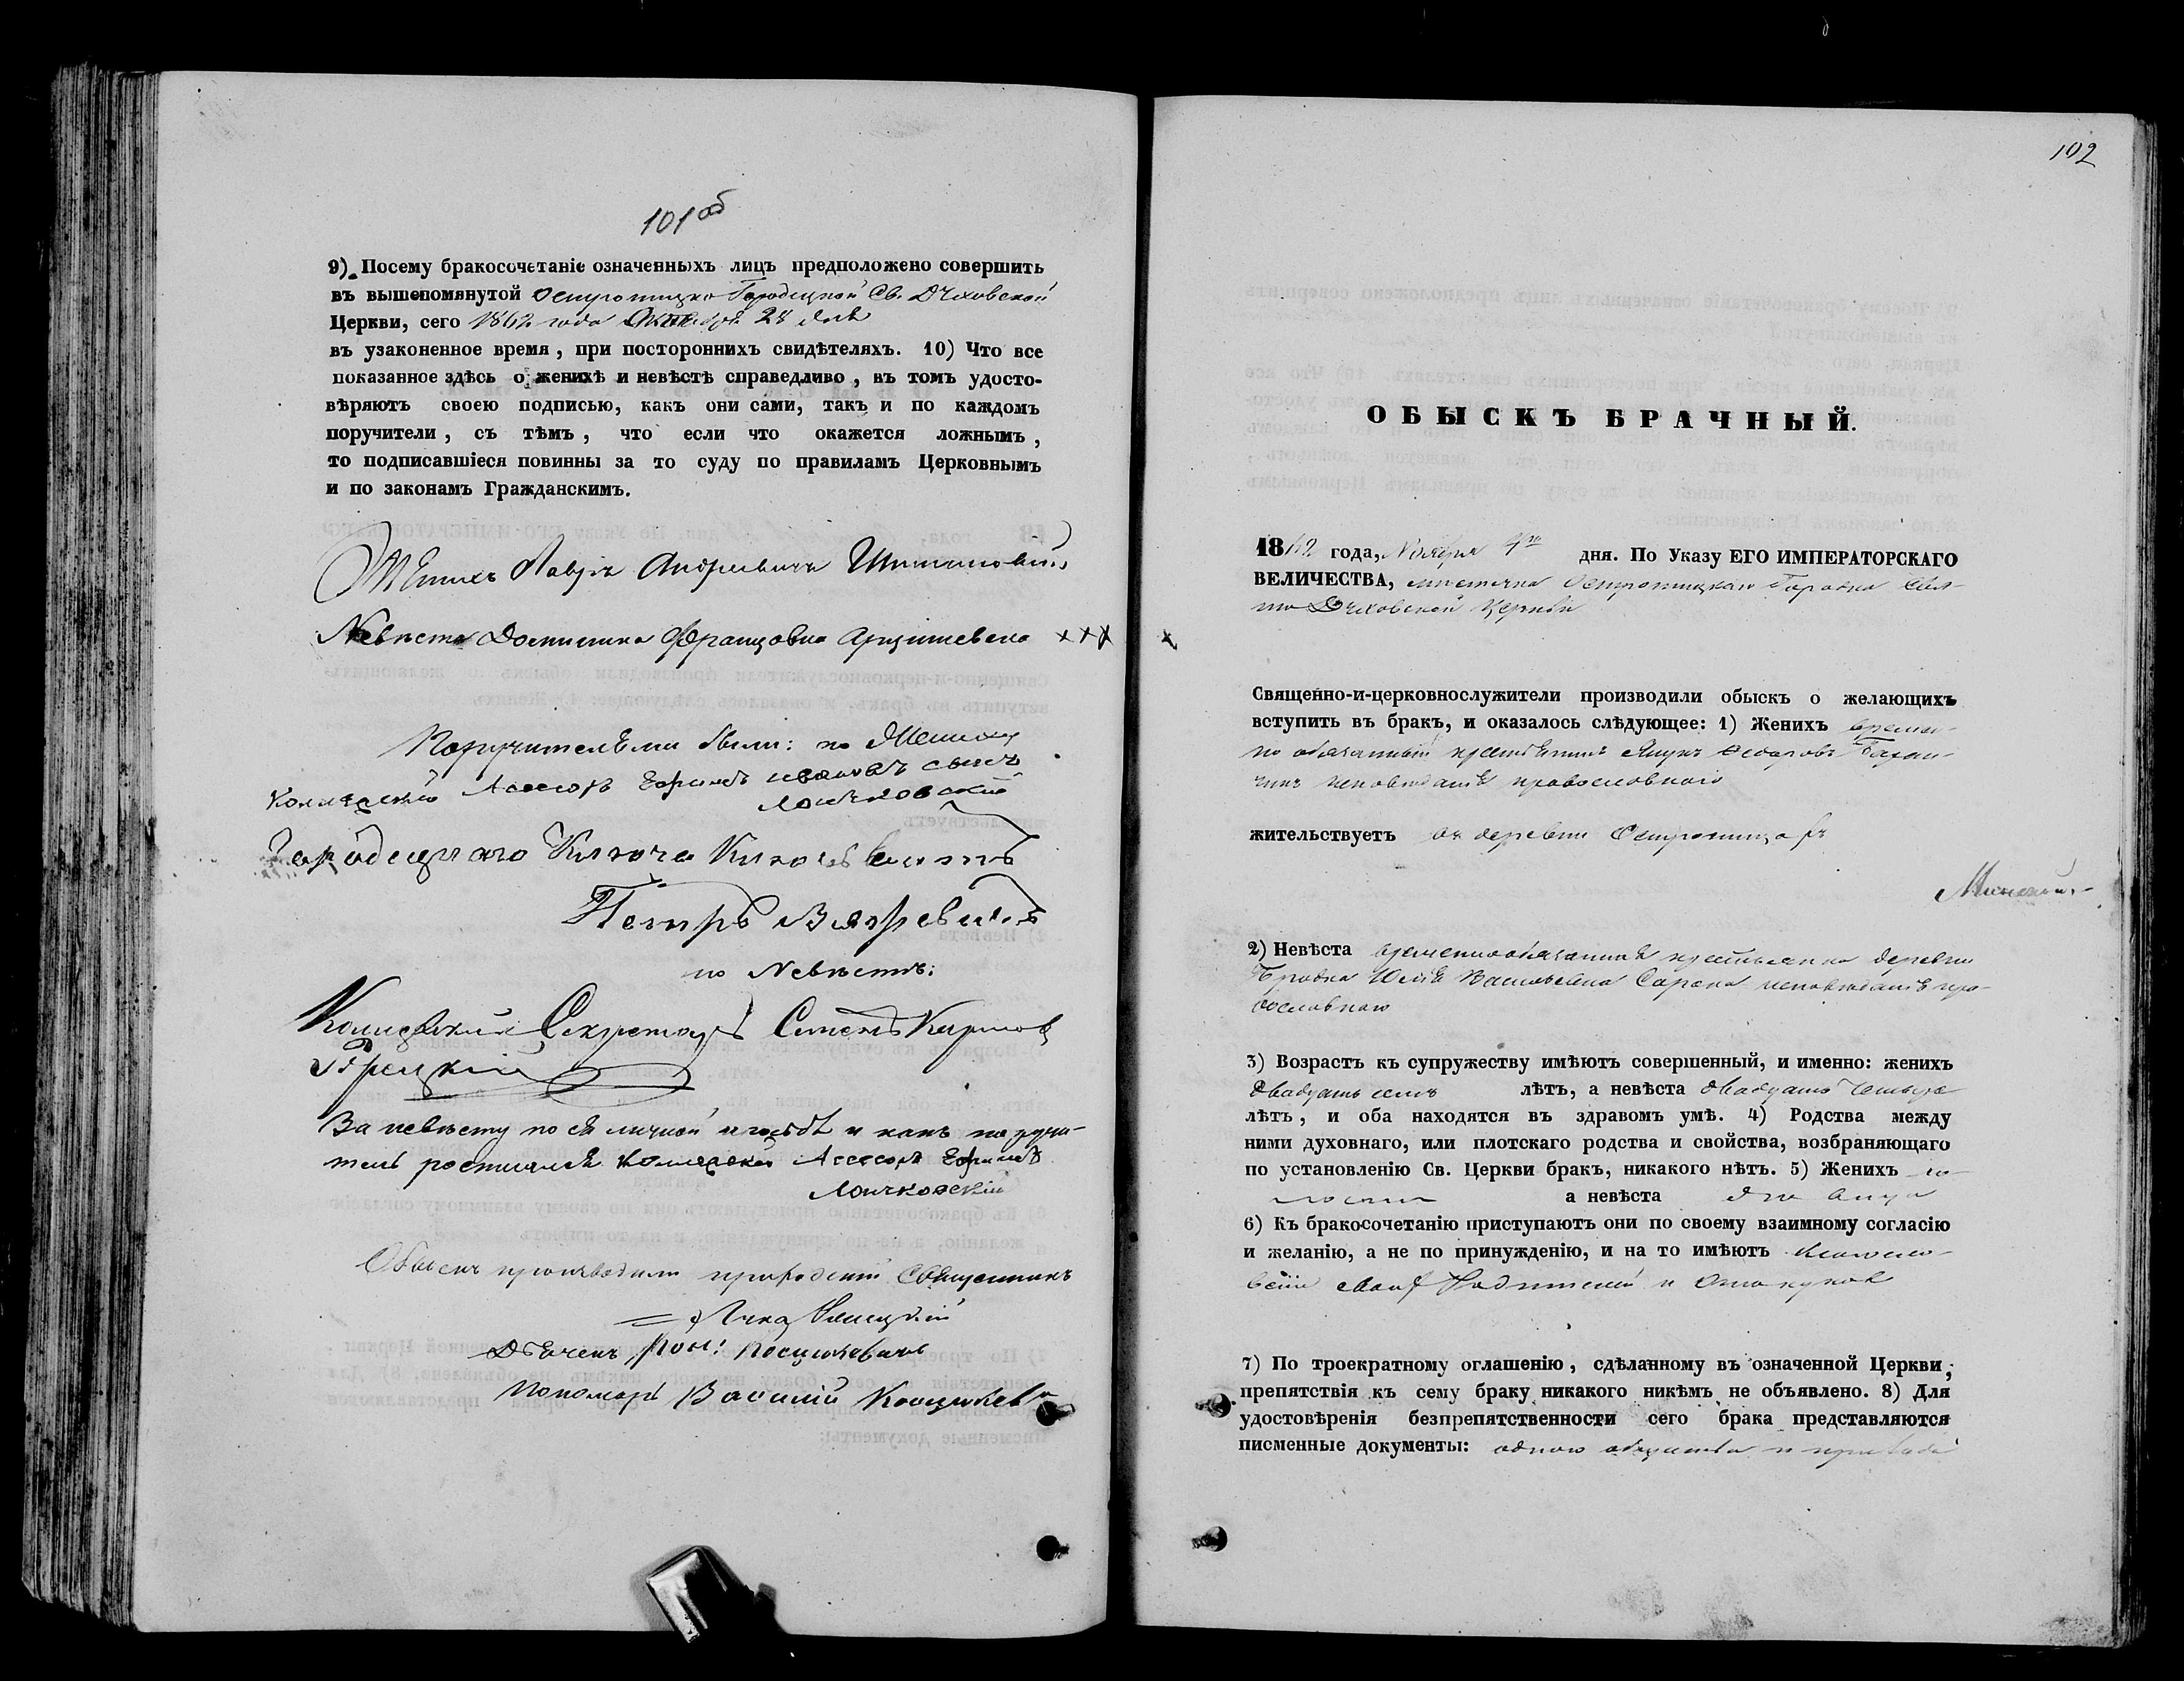 101 об
9) Посему бракосочетаніе означенныхъ лицъ предположено совершить
въ вышепомянутой Остротицко Городецкой Св. Духовской
Церкви, сего 1862 года Октября 28 дня
въ узаконенное время, при постороннихъ свидѣтеляхъ. 10) Что все
показанное здѣсь о женихѣ и невѣстѣ справедливо, въ томъ удосто-
вѣряютъ своею подписью, какъ они сами, такъ и по каждомъ
поручители, съ тѣмъ, что если что окажется ложнымъ,
то подписавшіеся повинны за то суду по правиламъ Церковнымъ
и по законамъ Гражданскимъ.
Женихъ Лавръ Андреевичъ
Невѣста Францовна ×××
Поручителями были: по Женихѣ
Колежскій Асесоръ Ефимъ Ивановъ сынъ
Городецкаго Ключа
Петръ
по Невѣстѣ:
Секретарь
За невѣсту по ея личной прозьбѣ и какъ поручи-
тель росписался Колежскій Асесоръ Ефимъ
Обыскъ производили приходскій Священникъ
Лука
Дьячекъ
Пономарь Василій
102
ОБЫСКЪ БРАЧНЫЙ.
1862 года, Ноября 4го дня. По Указу ЕГО ИМПЕРАТОРСКАГО
ВЕЛИЧЕСТВА, мѣстечка Городка Свя-
то Духовской Церкви
Священно-и-церковнослужители производили обыскъ о желающихъ
вступить въ бракъ, и оказалось слѣдующее: 1) Женихъ времен-
но обязанный крестьянинъ Ѳедоровъ
исповѣданія православнаго
жительствуетъ въ деревни
2) Невѣста временнообязанная крестьянка деревни
Васильевна исповѣданія пра-
вославнаго
3) Возрастъ къ супружеству имѣютъ совершенный, и именно: женихъ
двадцать семь лѣтъ, а невѣста двадцать четыре
лѣтъ, и оба находятся въ здравомъ умѣ. 4) Родства между
ними духовнаго, или плотскаго родства и свойства, возбраняющаго
по установленію Св. Церкви бракъ, никакого нѣтъ. 5) Женихъ хо-
лостъ а невѣста дѣвица
6) Къ бракосочетанію приступаютъ они по своему взаимному согласію
и желанію, а не по принужденію, и на то имѣютъ благосло-
веніе своихъ родителей и опекуновъ
7) По троекратному оглашенію, сдѣланному въ означенной Церкви,
препятствія къ сему браку никакого никѣмъ не объявлено. 8) Для
удостовѣренія безпрепятственности сего брака представляются
писменные документы: одного общества и прихода